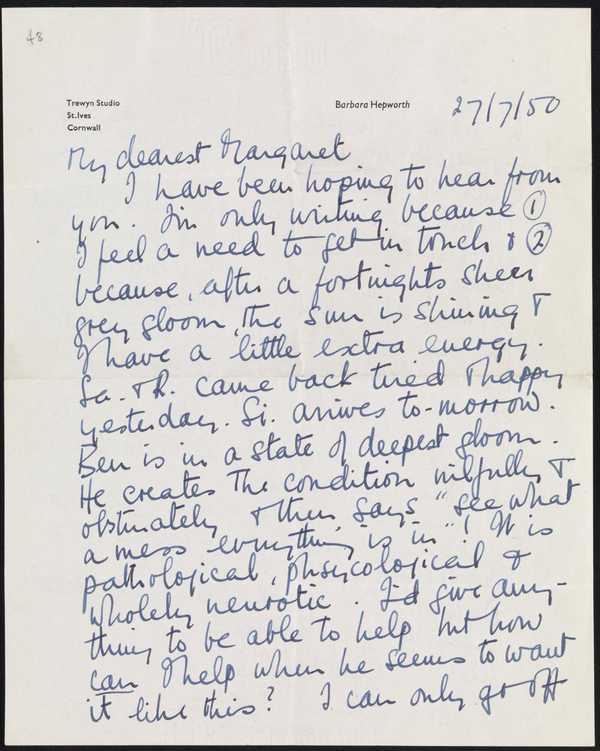 48
Trewyn Studio
St.Ives
Cornwall
Barbara Hepworth
27/7/50
My dearest Margaret
I have been hoping to hear from
you. I'm only writing because ①
I feel a need to get in touch & ②
because, after a fortnights sheer
grey gloom, the sun is shining &
I have a little extra energy.
Sa. & R. came back tired & happy
yesterday. Si. arrives to-morrow.
Ben is in a state of deepest gloom.
He creates the condition wilfully &
obstinately & then says "see what
a mess everything is in"! It is
pathological, phsycological &
wholely neurotic. I'd give any-
thing to be able to help but how
can I help when he seems to want
it like this? I can only go off